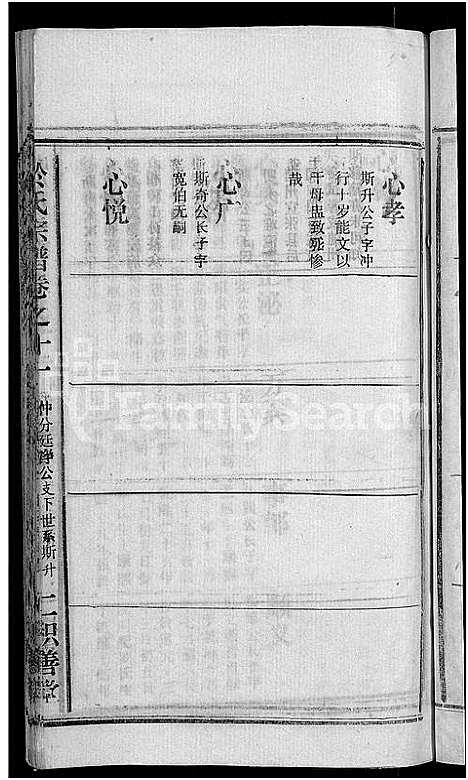 心孝
斯升公子字冲
行十岁能文以
干母蛊致死惨
哉
心广
斯奇公长子字
宽伯无嗣
心悦
氏宗谱卷之十一
仲分廷铮公支下世系斯升
积善堂
FamilySearch